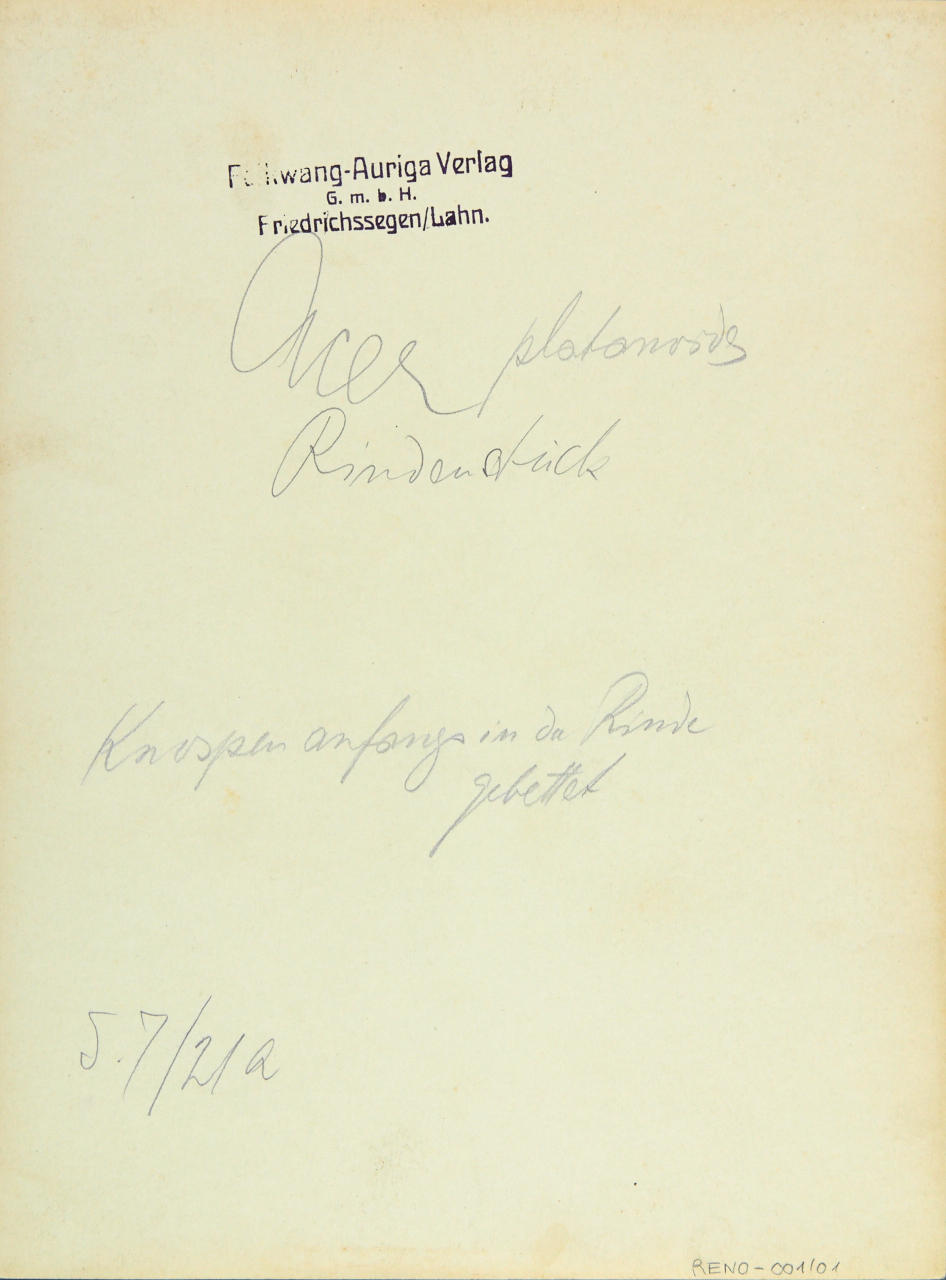 Folkwang-Auriga Verlag
G. m. b. H.
Friedrichssegen/Lahn.
Acer platanoides
Rindenstück
Knospen anfangs in der Rinde
gebettet
S. 7/21a
RENO-001/01